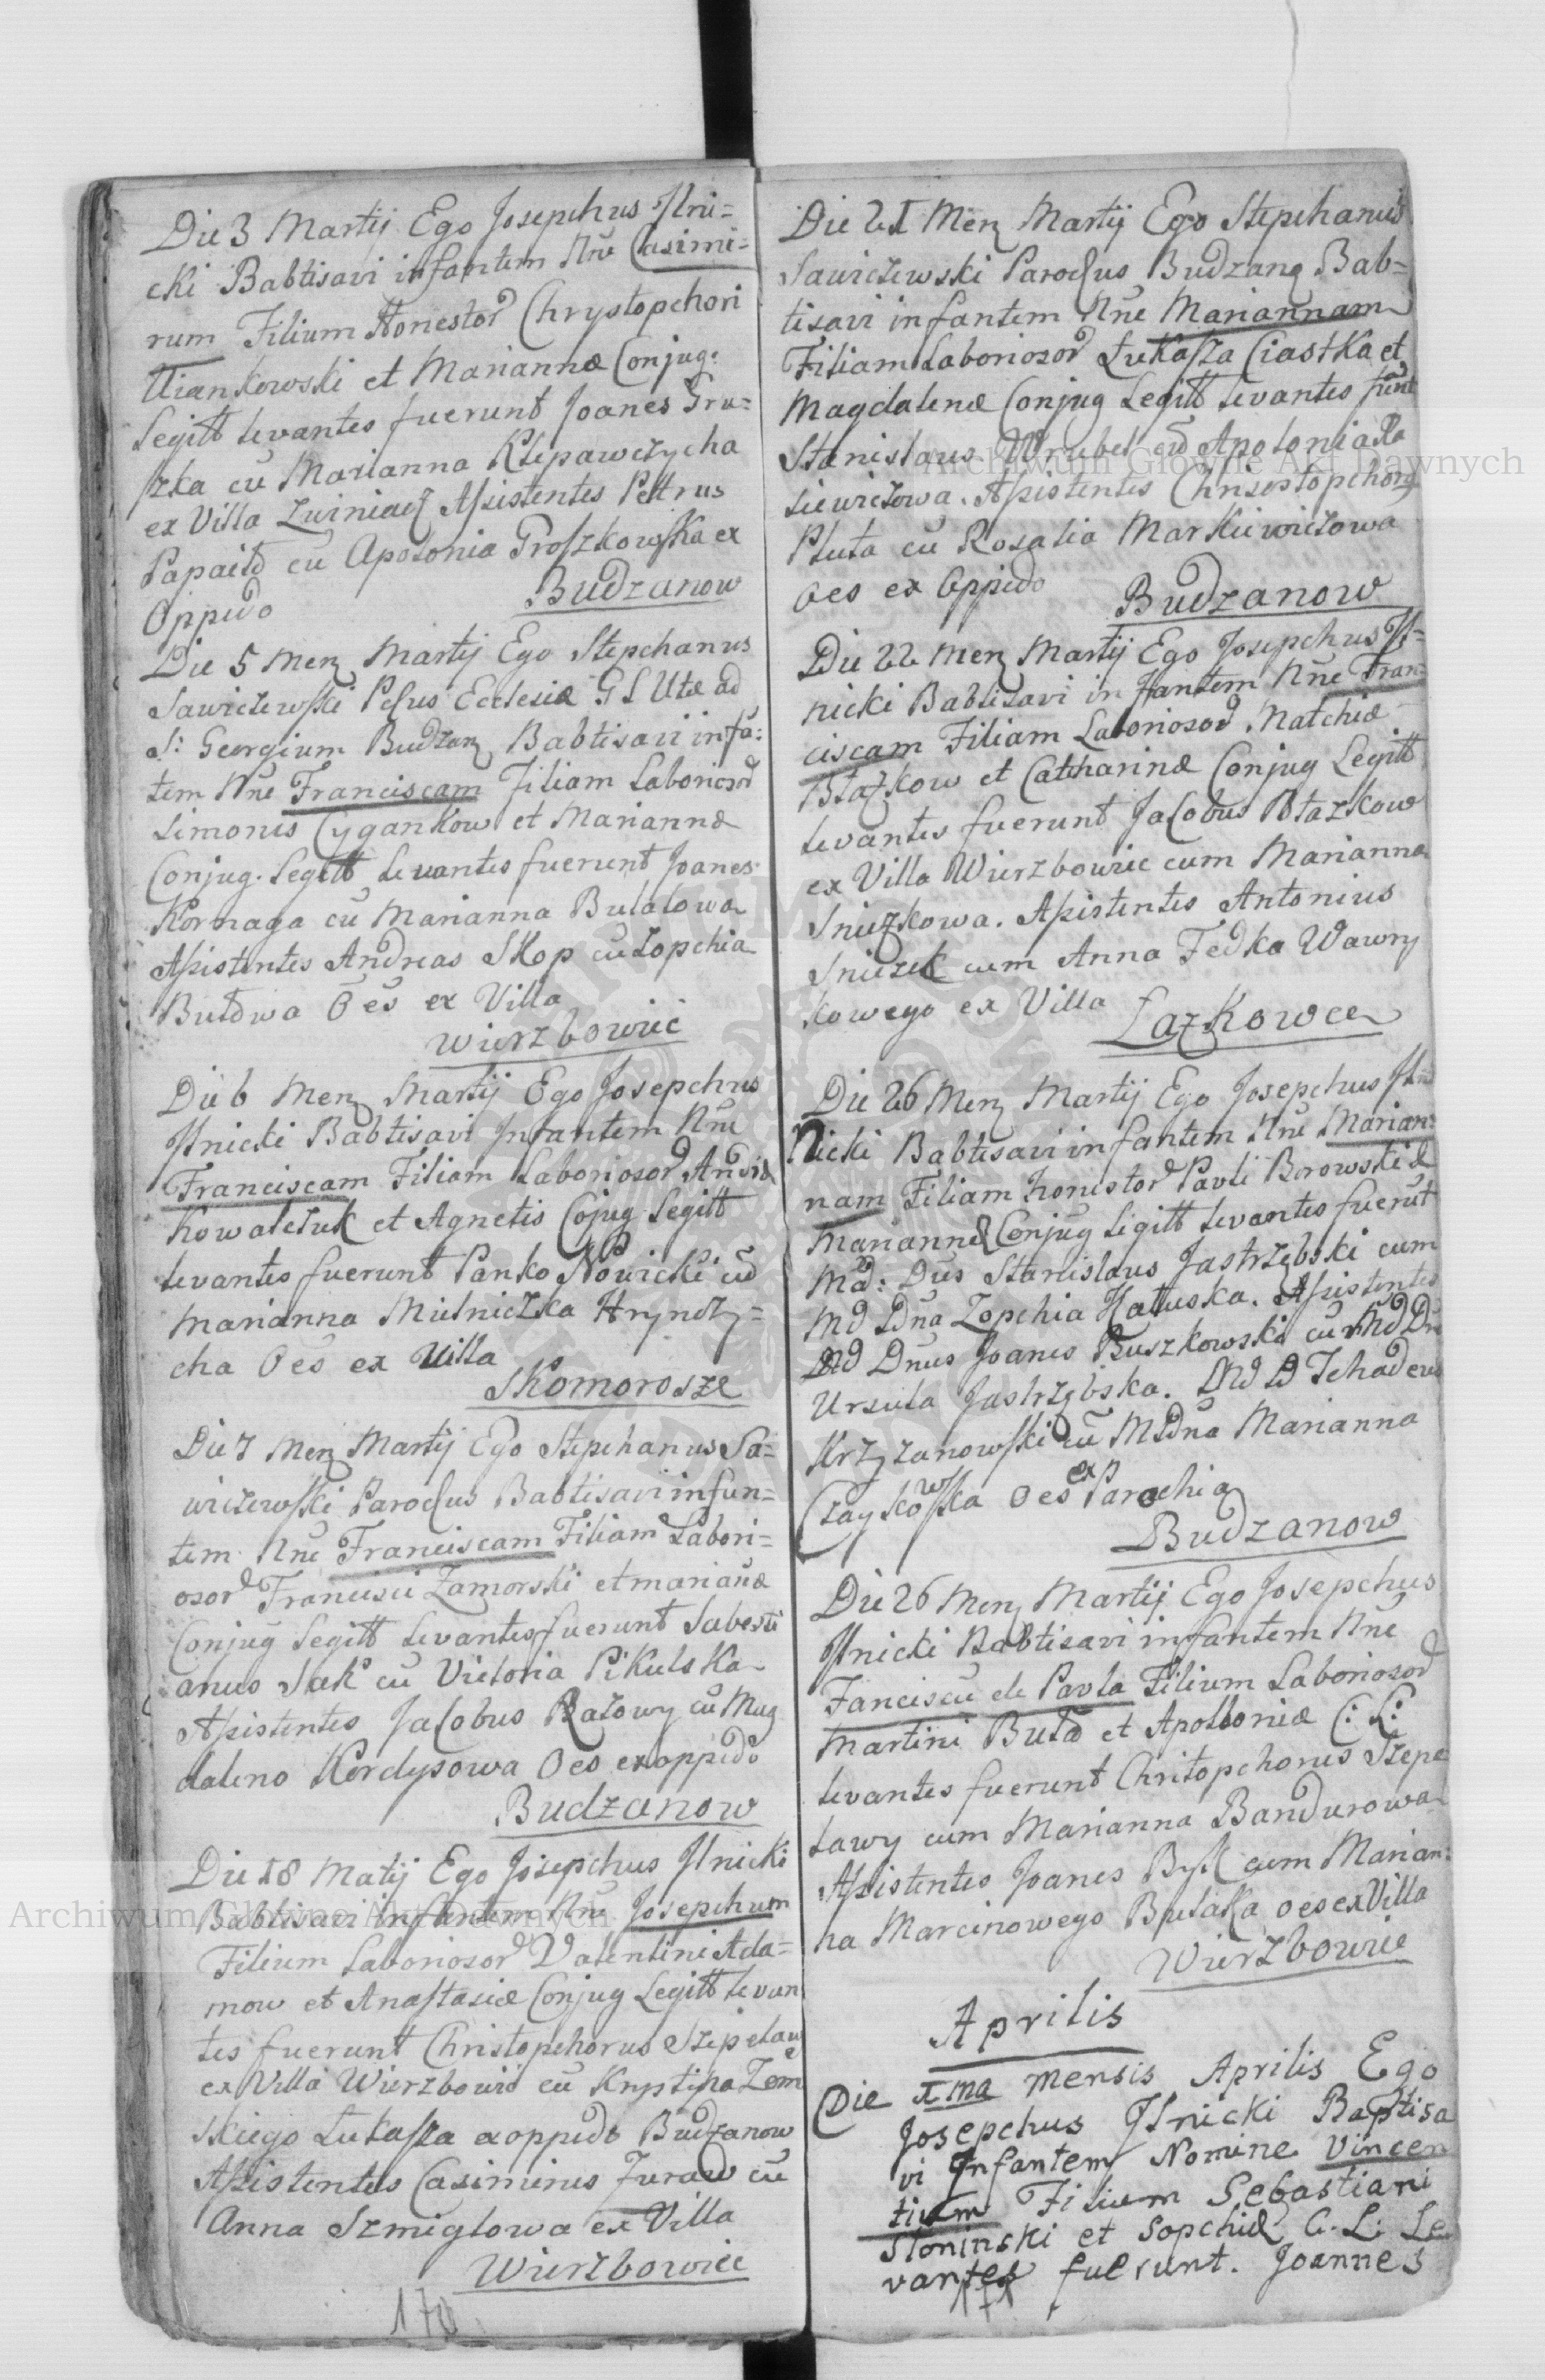 Die 3 Martij Ego Josepchus Ilni=
cki Babtisavi infantem Nrē Casimi=
rum Filium Honestor Chrystopchori
Uiankowski et Mariannæ Conjug.
Legitt levantes fuerunt Joanes Gru=
szka cū Marianna Klepawczycha
ex Villa Zwiniacz Assistentes Pettrus
Papaito cu Apolonia Proszkowska ex
Oppido Budzanow
Die 5 Menz Martij Ego Stepchanus
Sawiczewski Pchus Ecclesiæ G S Utæ ad
S: Georgium Budzanz Babtisavi infā=
tem Nnē Franciscam Filiam Laboriosor
Simonis Cygankow et Mariannæ
Conjug. Legitt levantes fuerunt Joanes
Kornaga cū Marianna Bulatowa
Assistentes Andreas Skop cu Zopchia
Butdwa Oēs ex Villa
Wierzbowiec
Die 6 Menz Martij Ego Josepchus
Ilnicki Babtisavi Infantem Nnē
Franciscam Filiam Laboriosor Andræ
Kowalczuk et Agnetis Cojug Legitt
levantes fuerunt Panko Nowicki cū
Marianna Mielniczka Hryndzy=
cha Oēs ex Villa
Skomorosze
Die 7 Menz Martij Ego Stepchanus Sa=
wiczewski Parochus Babtisavi infan=
tem Nnē Franciscam Filiam Labori=
osor Francisci Zamorski et marianæ
Conjug Legitt levantes fuerunt Sabesti
anus Sak cū Victoria Pikulska
Assistentes Jacobus Ratowy cū Mag
daleno Kordysowa Oes ex oppido
Budzanow
Die 18 Matij Ego Josepchus Ilnicki
Babtisavi infantem Nnē Josepchum
Filium Laboriosor Valentini Ada=
mow et Anastasiæ Conjug Legitt levan
tes fuerunt Christopchorus Szepetaw
ex Villa Wierzbowie cū Krystina Zem
skiego Lukasza ex oppido Budzanow
Assistentes Casimirus Zuraw cū
Anna Szmiglowa ex Villa
Wierzbowiec
170
Die 21 Menz Martij Ego Stepchanus
Sawiczewski Parochus Budzanz Bab=
tisavi infantem Nnē Mariannam
Filiam Laboriosor Łukasza Ciastka et
Magdalenæ Conjug Legitt levantes fuert
Stanislaus Wrubel cū Apolonia Ra
siewiczowa. Assistentes Chrisostopchorg
Pluta cū Rosalia Markiewiczowa
Oes ex Oppido Budzanow
Die 22 Menz Martij Ego Josepchus Il=
nicki Babtisavi infantem Nnē Fran=
ciscam Filiam Laboriosor Matchiæ
Błazkow et Catcharinæ Conjug Legitt
levantes fuerunt Jacobus Błazkow
ex Villa Wierzbowiec cum Marianna
Sniezkowa. Assistentes Antonius
Sniezek cum Anna Fedka Wawry
kowego ex Villa Lazkowce
Die 26 Menz Martij Ego Josepchus Ilni
Nicki Babtisavi infantem Nnē Marian=
nam Filiam honestor Pavli Borowski &
Mariannæ Conjug Ligitt levantes fuerūt
Md: Dūs Stanislaus Jastrzębski cum
Md Ddna Zopchia Hatuska. Assistentes
Md Dnus Joanes Ruszkowski cū Md Dn
Ursula Jastrzębska. Md D Tchadeus
Krzyzanowski cū MDdna Marianna
Czaykowska Oes ex Parochia
Budzanow
Die 26 Menz Martij Ego Josepchus
Ilnicki Babtisavi infantem Nnē
Fanciscū de Pavla Filium Laboriosor
Martini Butd et Apolloniæ C: L:
levantes fuerunt Chritopchorus Szepe
tawy cum Marianna Bandurowa
Assistentes Joanes Bysk cum Marian:
na Marcinowego Bulaka oes ex Villa
Wierzbowie
Aprilis
Die 1ma Mensis Aprilis Ego
Josepchus Ilnicki Baptisa
vi Infantem Nomine Vincen
tium Filium Sebastiani
Słoninski et Sopchiæ C. L: Le
vantes fuerunt. Joannes
171
Archiwum Główne Akt Dawnych
Archiwum Główne Akt Dawnych